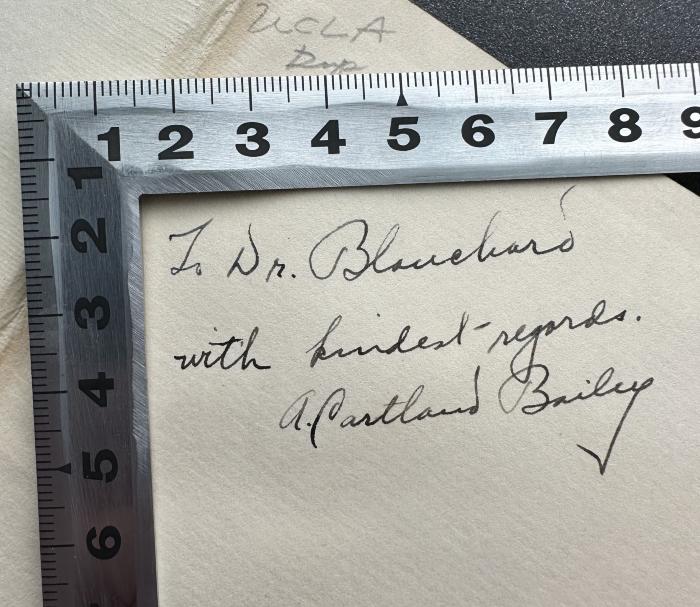 UCLA
Dup
1 2 3 4 5 6 7 8 9
1
2
3
4
5
6
To Dr. Blanchard
with kindest regards.
A. Cortland Bailey